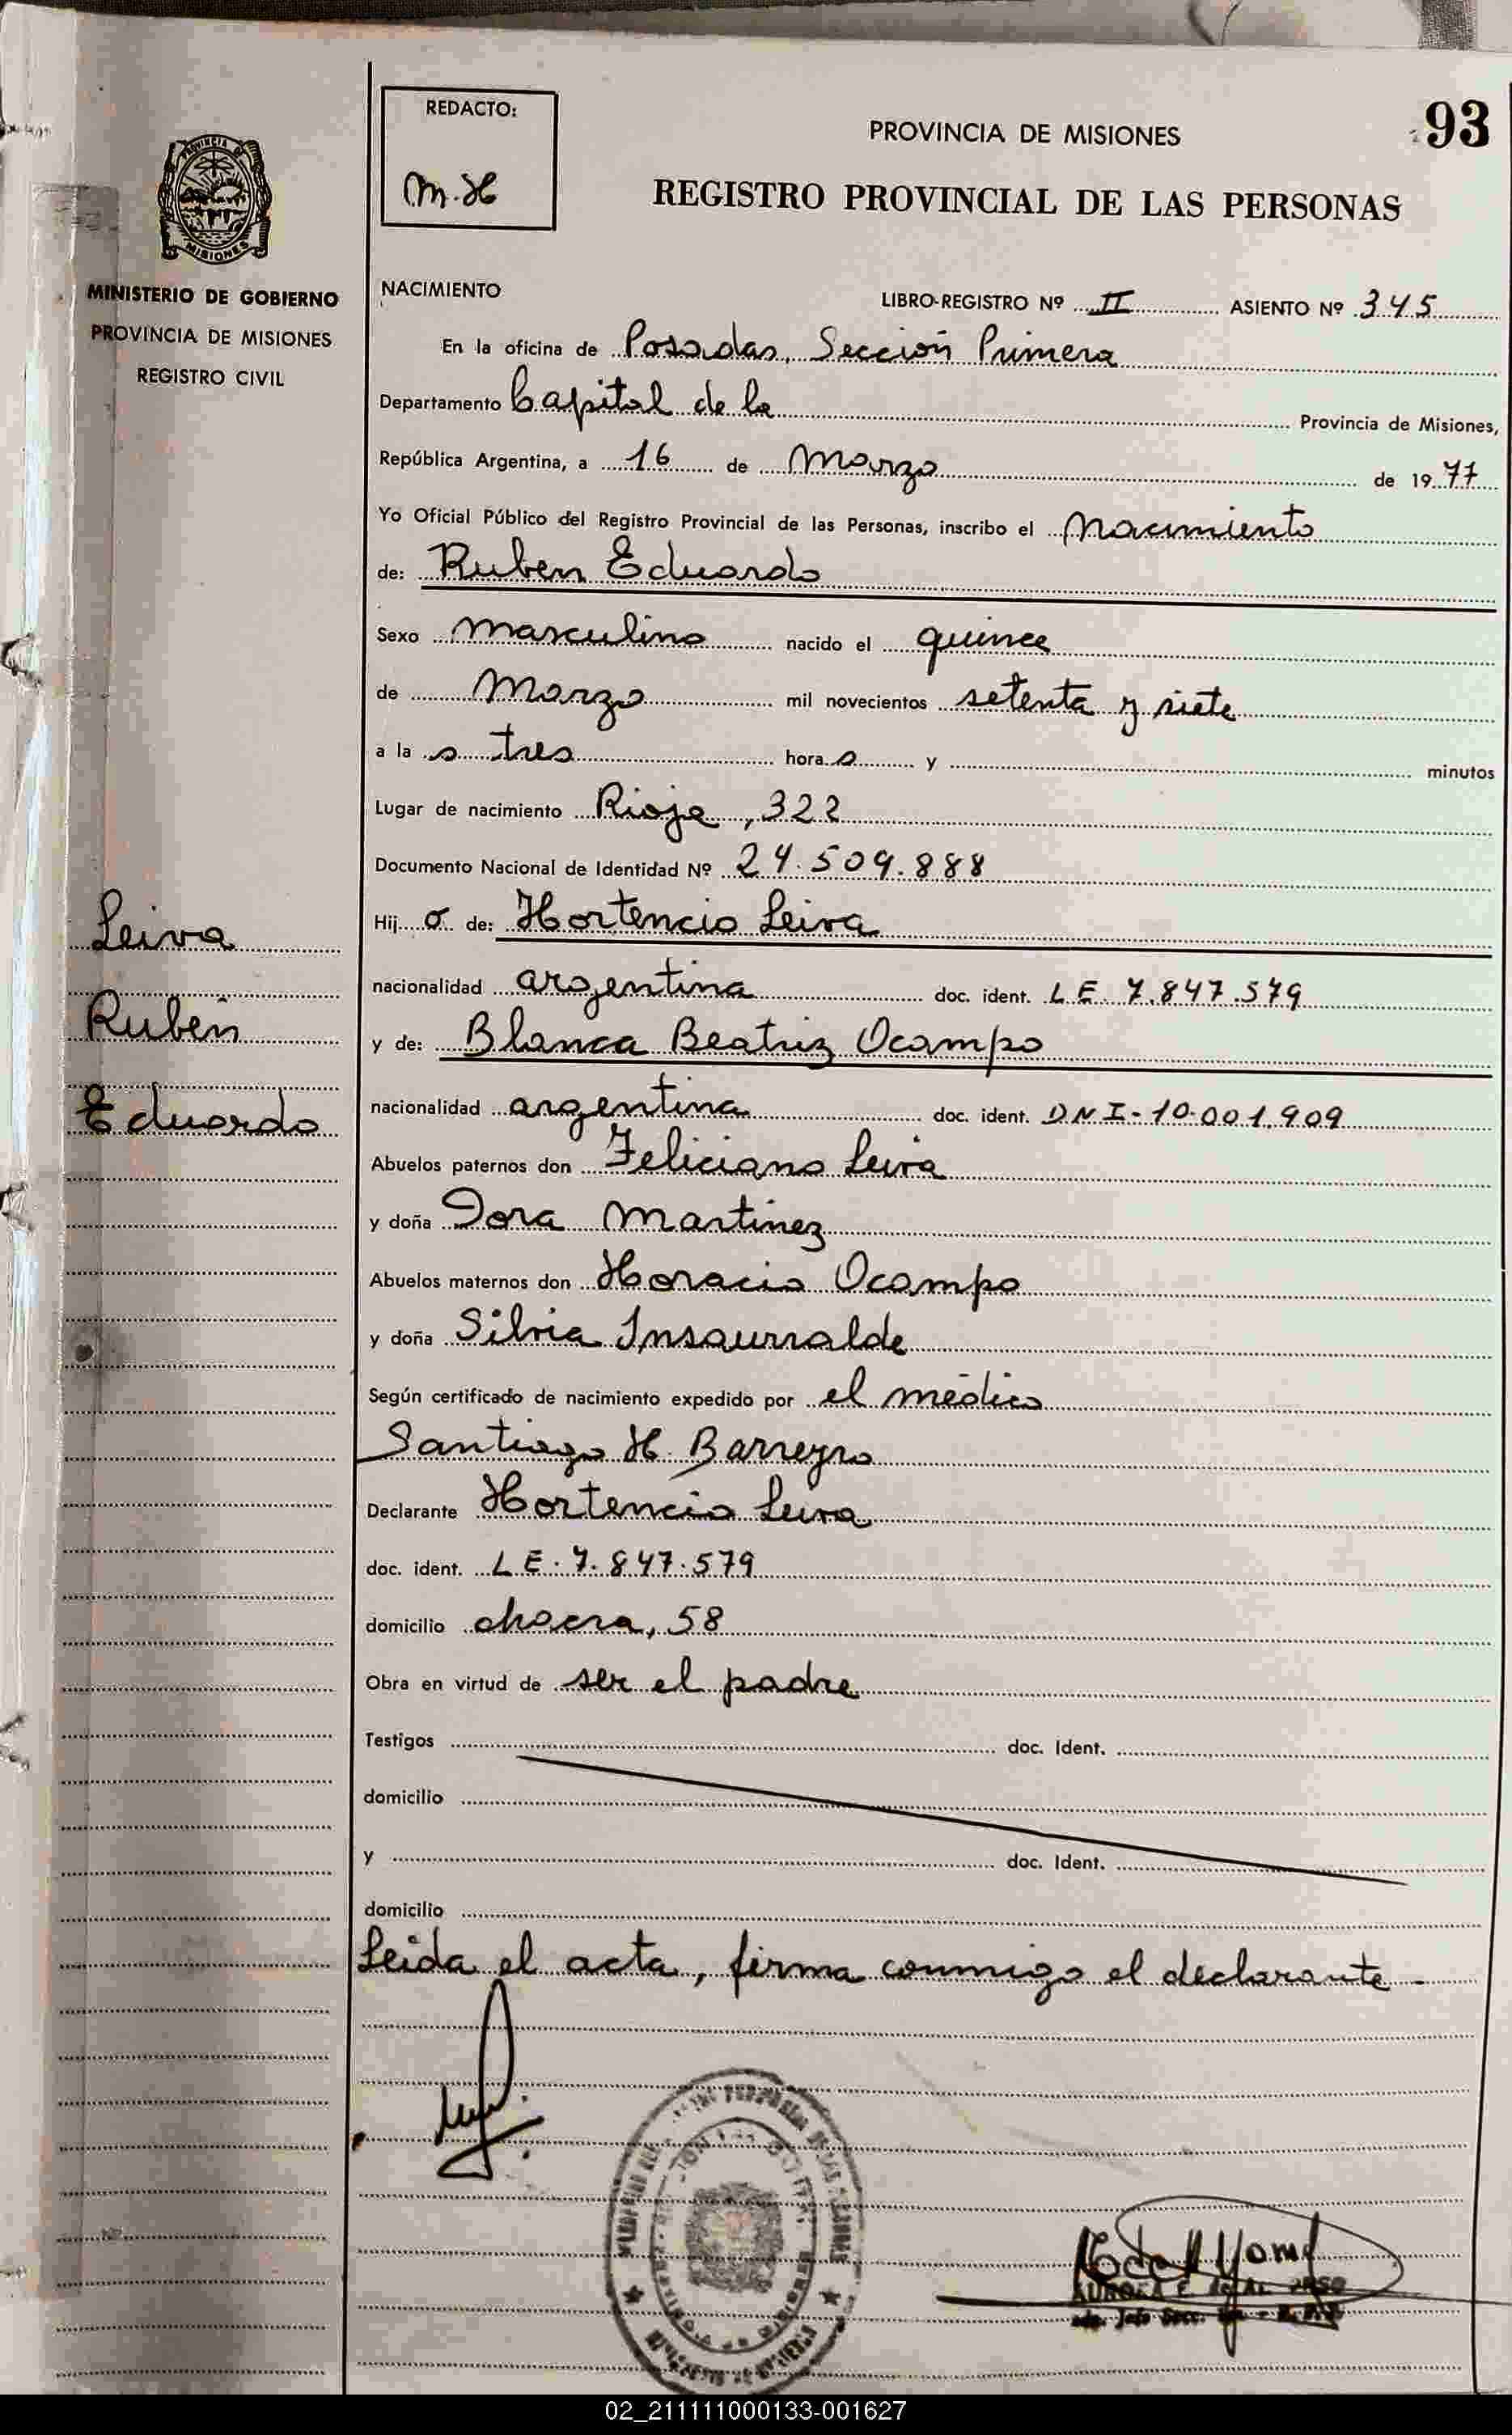 93
REDACTO:
M.H
PROVINCIA DE MISIONES
REGISTRO PROVINCIAL DE LAS PERSONAS
PROVINCIA DE
MISIONES
MINISTERIO DE GOBIERNO
PROVINCIA DE MISIONES
REGISTRO CIVIL
NACIMIENTO
LIBRO-REGISTRO Nº II ASIENTO Nº 345
En la oficina de Posadas, Sección Primera
Departamento Capital de la Provincia de Misiones,
República Argentina, a 16 de Marzo de 1977
Yo Oficial Público del Registro Provincial de las Personas, inscribo el Nacimiento
de: Ruben Eduardo
Sexo masculino nacido el quince
de Marzo mil novecientos setenta y siete
a la s tres hora s y minutos
Lugar de nacimiento Rioja, 322
Documento Nacional de Identidad Nº 24.509.888
Hij o de: Hortencio Leiva
nacionalidad argentina doc. ident. L E. 7.847.579
y de: Blanca Beatriz Ocampo
nacionalidad argentina doc. ident. D N I - 10.001.909
Abuelos paternos don Feliciano Leiva
y doña Dora Martinez
Abuelos maternos don Horacio Ocampo
y doña Silvia Insaurralde
Según certificado de nacimiento expedido por el médico
Santiago H. Barreyro
Declarante Hortencio Leiva
doc. ident. L E. 7.847.579
domicilio chacra, 58
Obra en virtud de ser el padre
Testigos doc. Ident.
domicilio
y doc. Ident.
domicilio
Leida el acta, firma conmigo el declarante.
Leiva
Ruben
Eduardo
AURORA E.
02_211111000133-001627